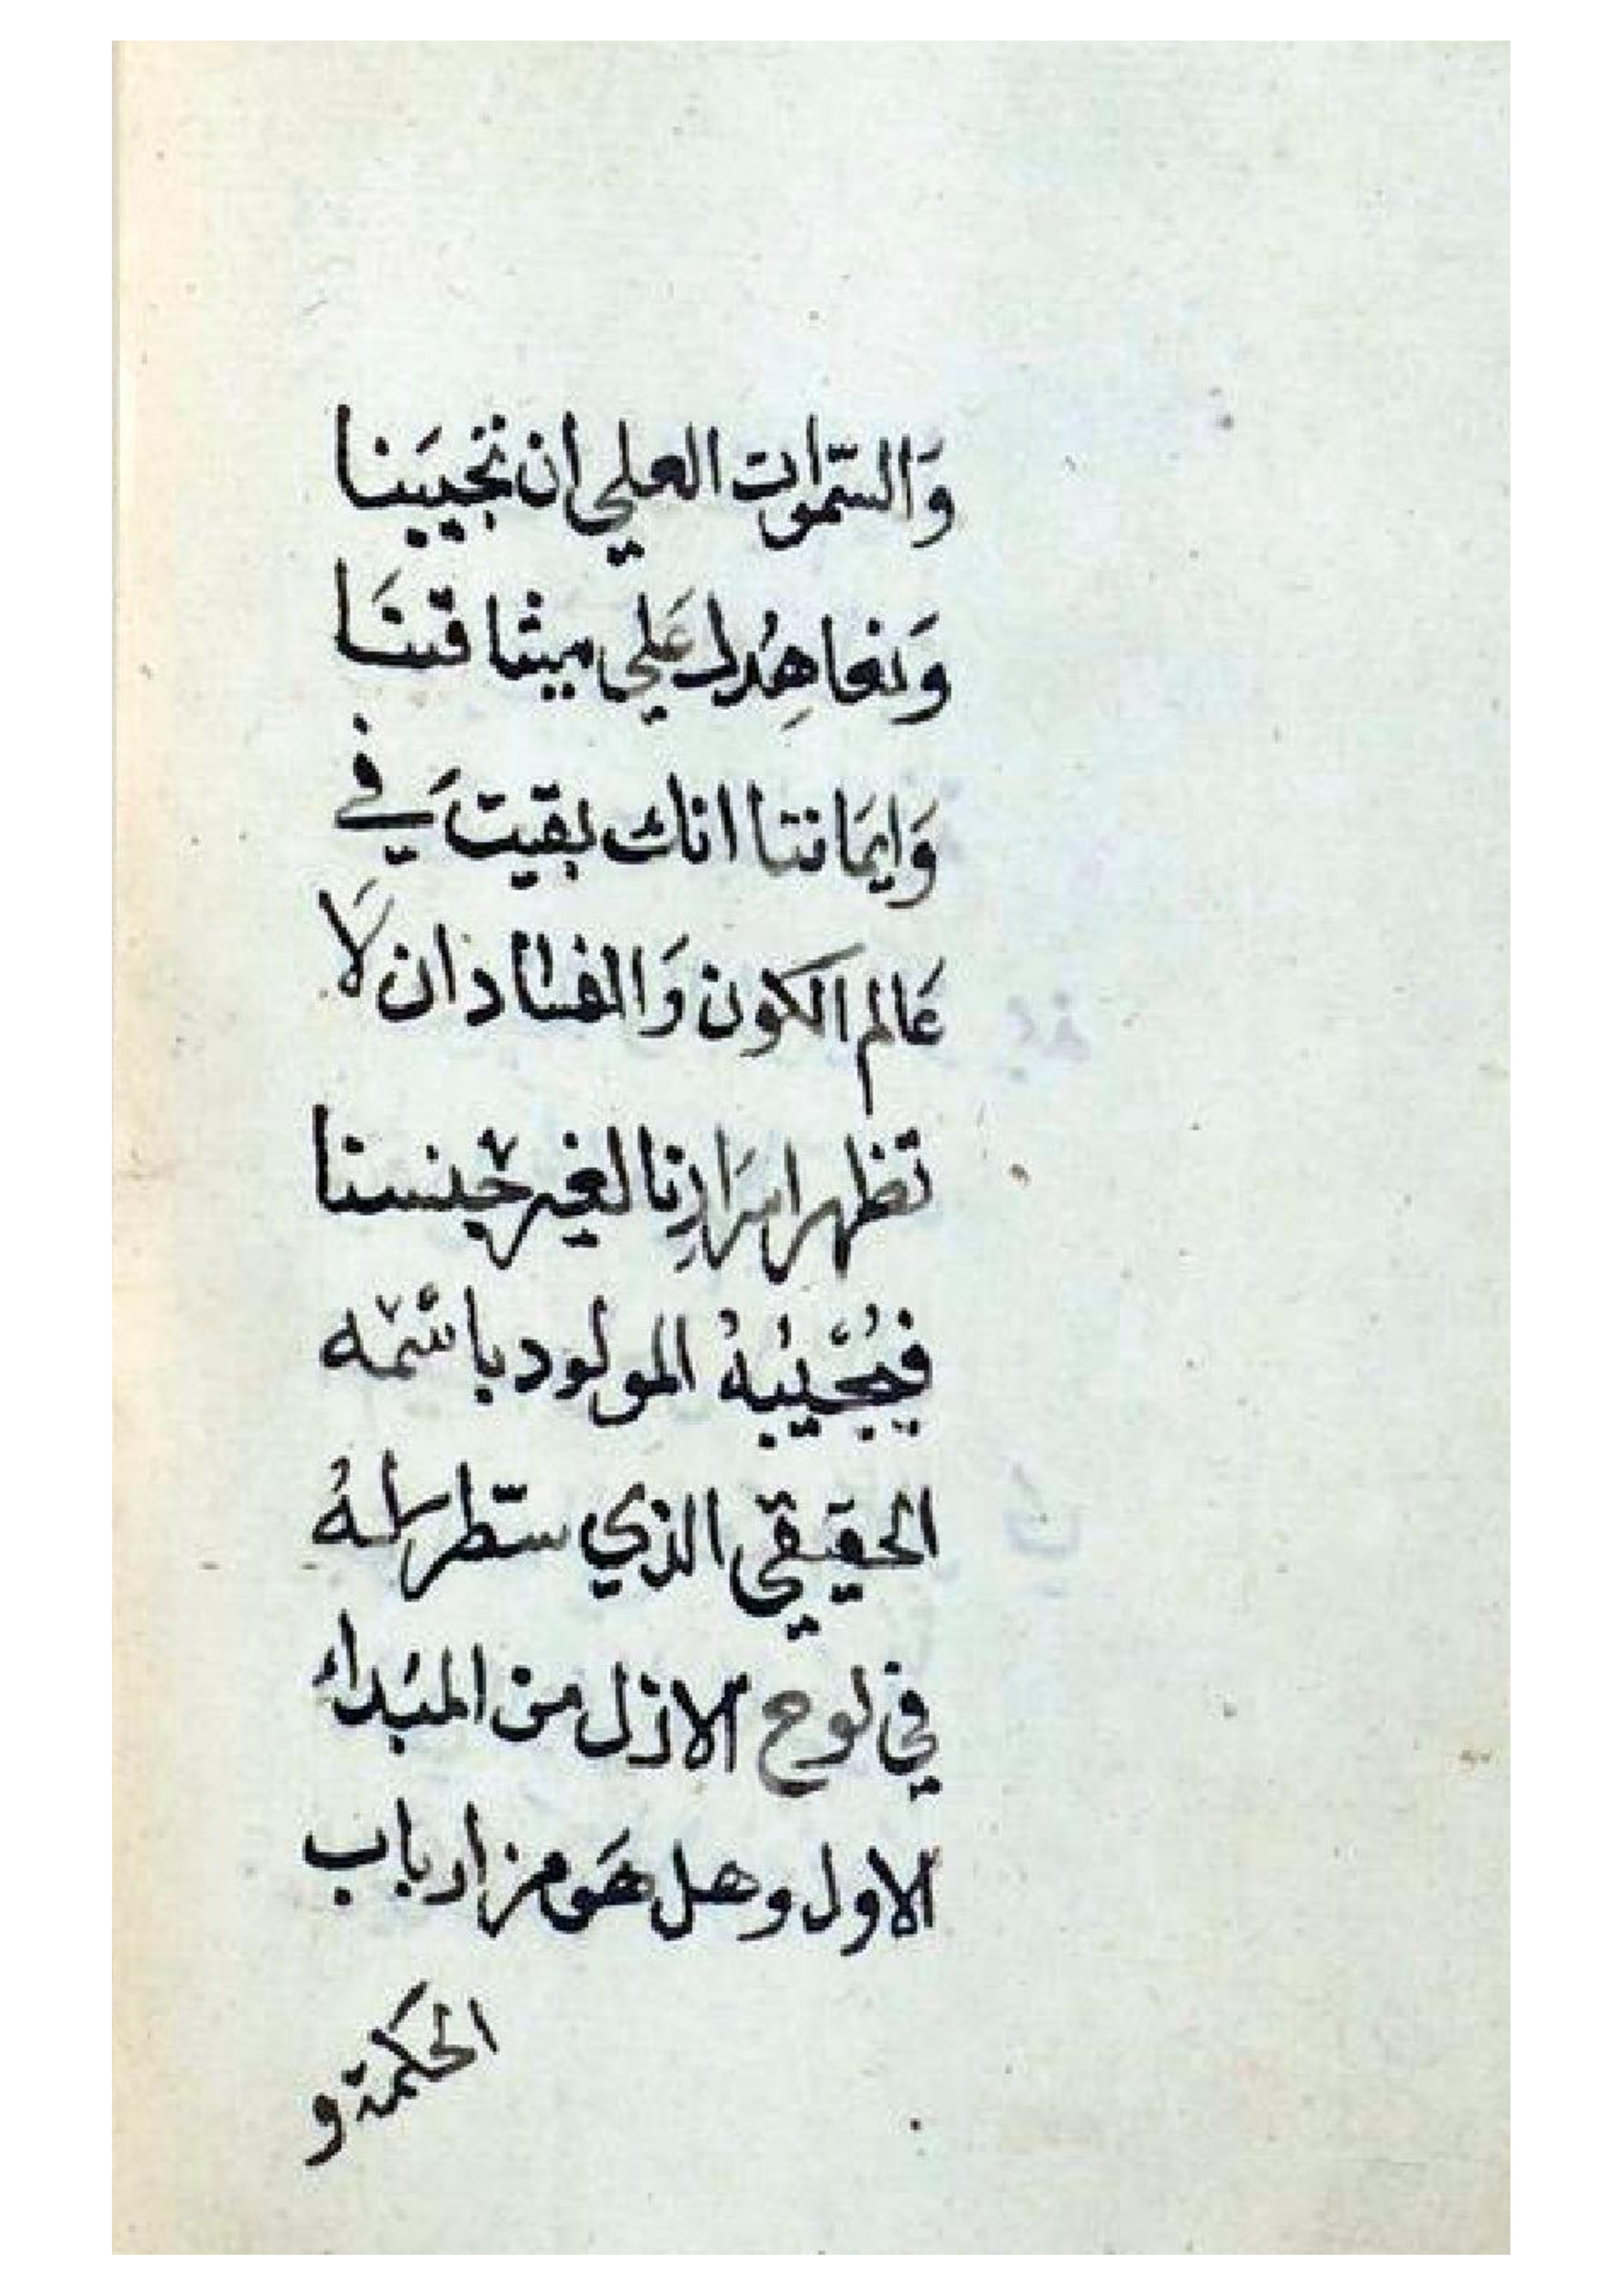 وَالسّموات العلي ان تجيبَنا
وَنعاهِدُك عَلي ميثاقنَا
وَايمَاننا انك بقيت في
عَالم الكون وَالفساد ان لَا
تظهر اسرَارِنا لغير جنسنا
فيُجيْبُهُ المولود باسْمْه
الحقيقي الذي سّطر لهُ
في لوح الازل من المبُداء
الاول وهل هَو من ارباب
الحكمة و